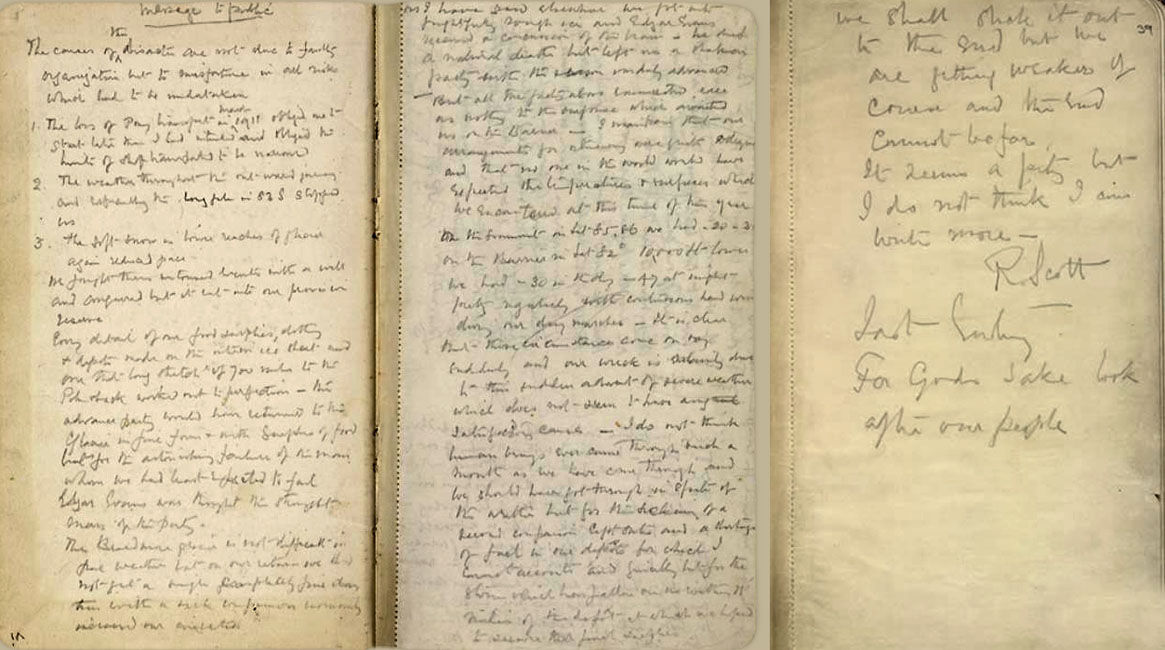 Message to public
The causes of the disaster are not due to faulty
organisation but to misfortune in all risks
which had to be undertaken
1. The loss of Pony transport in March 1911 obliged me to
start later than I had intended and obliged the
limits of stuff transported to be narrowed
2. The weather throughout the outward journey
and especially the long gale in 83 S stopped
us
3. The soft snow in lower reaches of glacier
again reduced pace
We fought these untoward events with a will
and conquered but it cut into our provision
reserve
Every detail of our food supplies, clothing
+ depots made on the interior ice sheet and
over that long stretch of 700 miles to the
Pole + back worked out to perfection — the
advance party would have returned to the
glacier in fine form + with surplus of food
but for the astonishing failure of the man
whom we had least expected to fail
Edgar Evans was thought the strongest
man of the party -
The Beardmore glacier is not difficult in
fine weather but on our return we did
not get a single completely fine day
this with a sick companion enormously
increased our anxieties
18
As I have said elsewhere we got into
frightfully rough ice and Edgar Evans
received a concussion of the brain — he died
a natural death but left us a shaken
party with the season unduly advanced
— But all the facts above enumerated were
as nothing to the surprise which awaited
us on the Barrier — I maintain that our
arrangements for returning were quite adequate
and that no one in the world would have
expected the temperatures + surfaces which
we encountered at this time of the year
On the Summit in Lat 85, 86 we had -20 -30
on the Barrier in Lat 82° 10,000 ft lower
we had -30 in the day -47 at night
pretty regularly with continuous head wind
during our day marches — It is clear
that these circumstances come on very
suddenly and our wreck is certainly due
to this sudden advent of severe weather
which does not seem to have any
satisfactory cause — I do not think
human beings ever came through such a
month as we have come through and
we should have got through in spite of
the weather but for the sickening of a
second companion Capt Oates and a shortage
of fuel in our depots for which I
cannot account and finally but for the
storm which has fallen on us within 11
miles of the depot at which we hoped
to secure the final supplies
39
we shall stick it out
to the end but we
are getting weaker of
course and the end
cannot be far.
It seems a pity but
I do not think I can
write more —
R. Scott
Last Entry
For Gods sake look
after our people